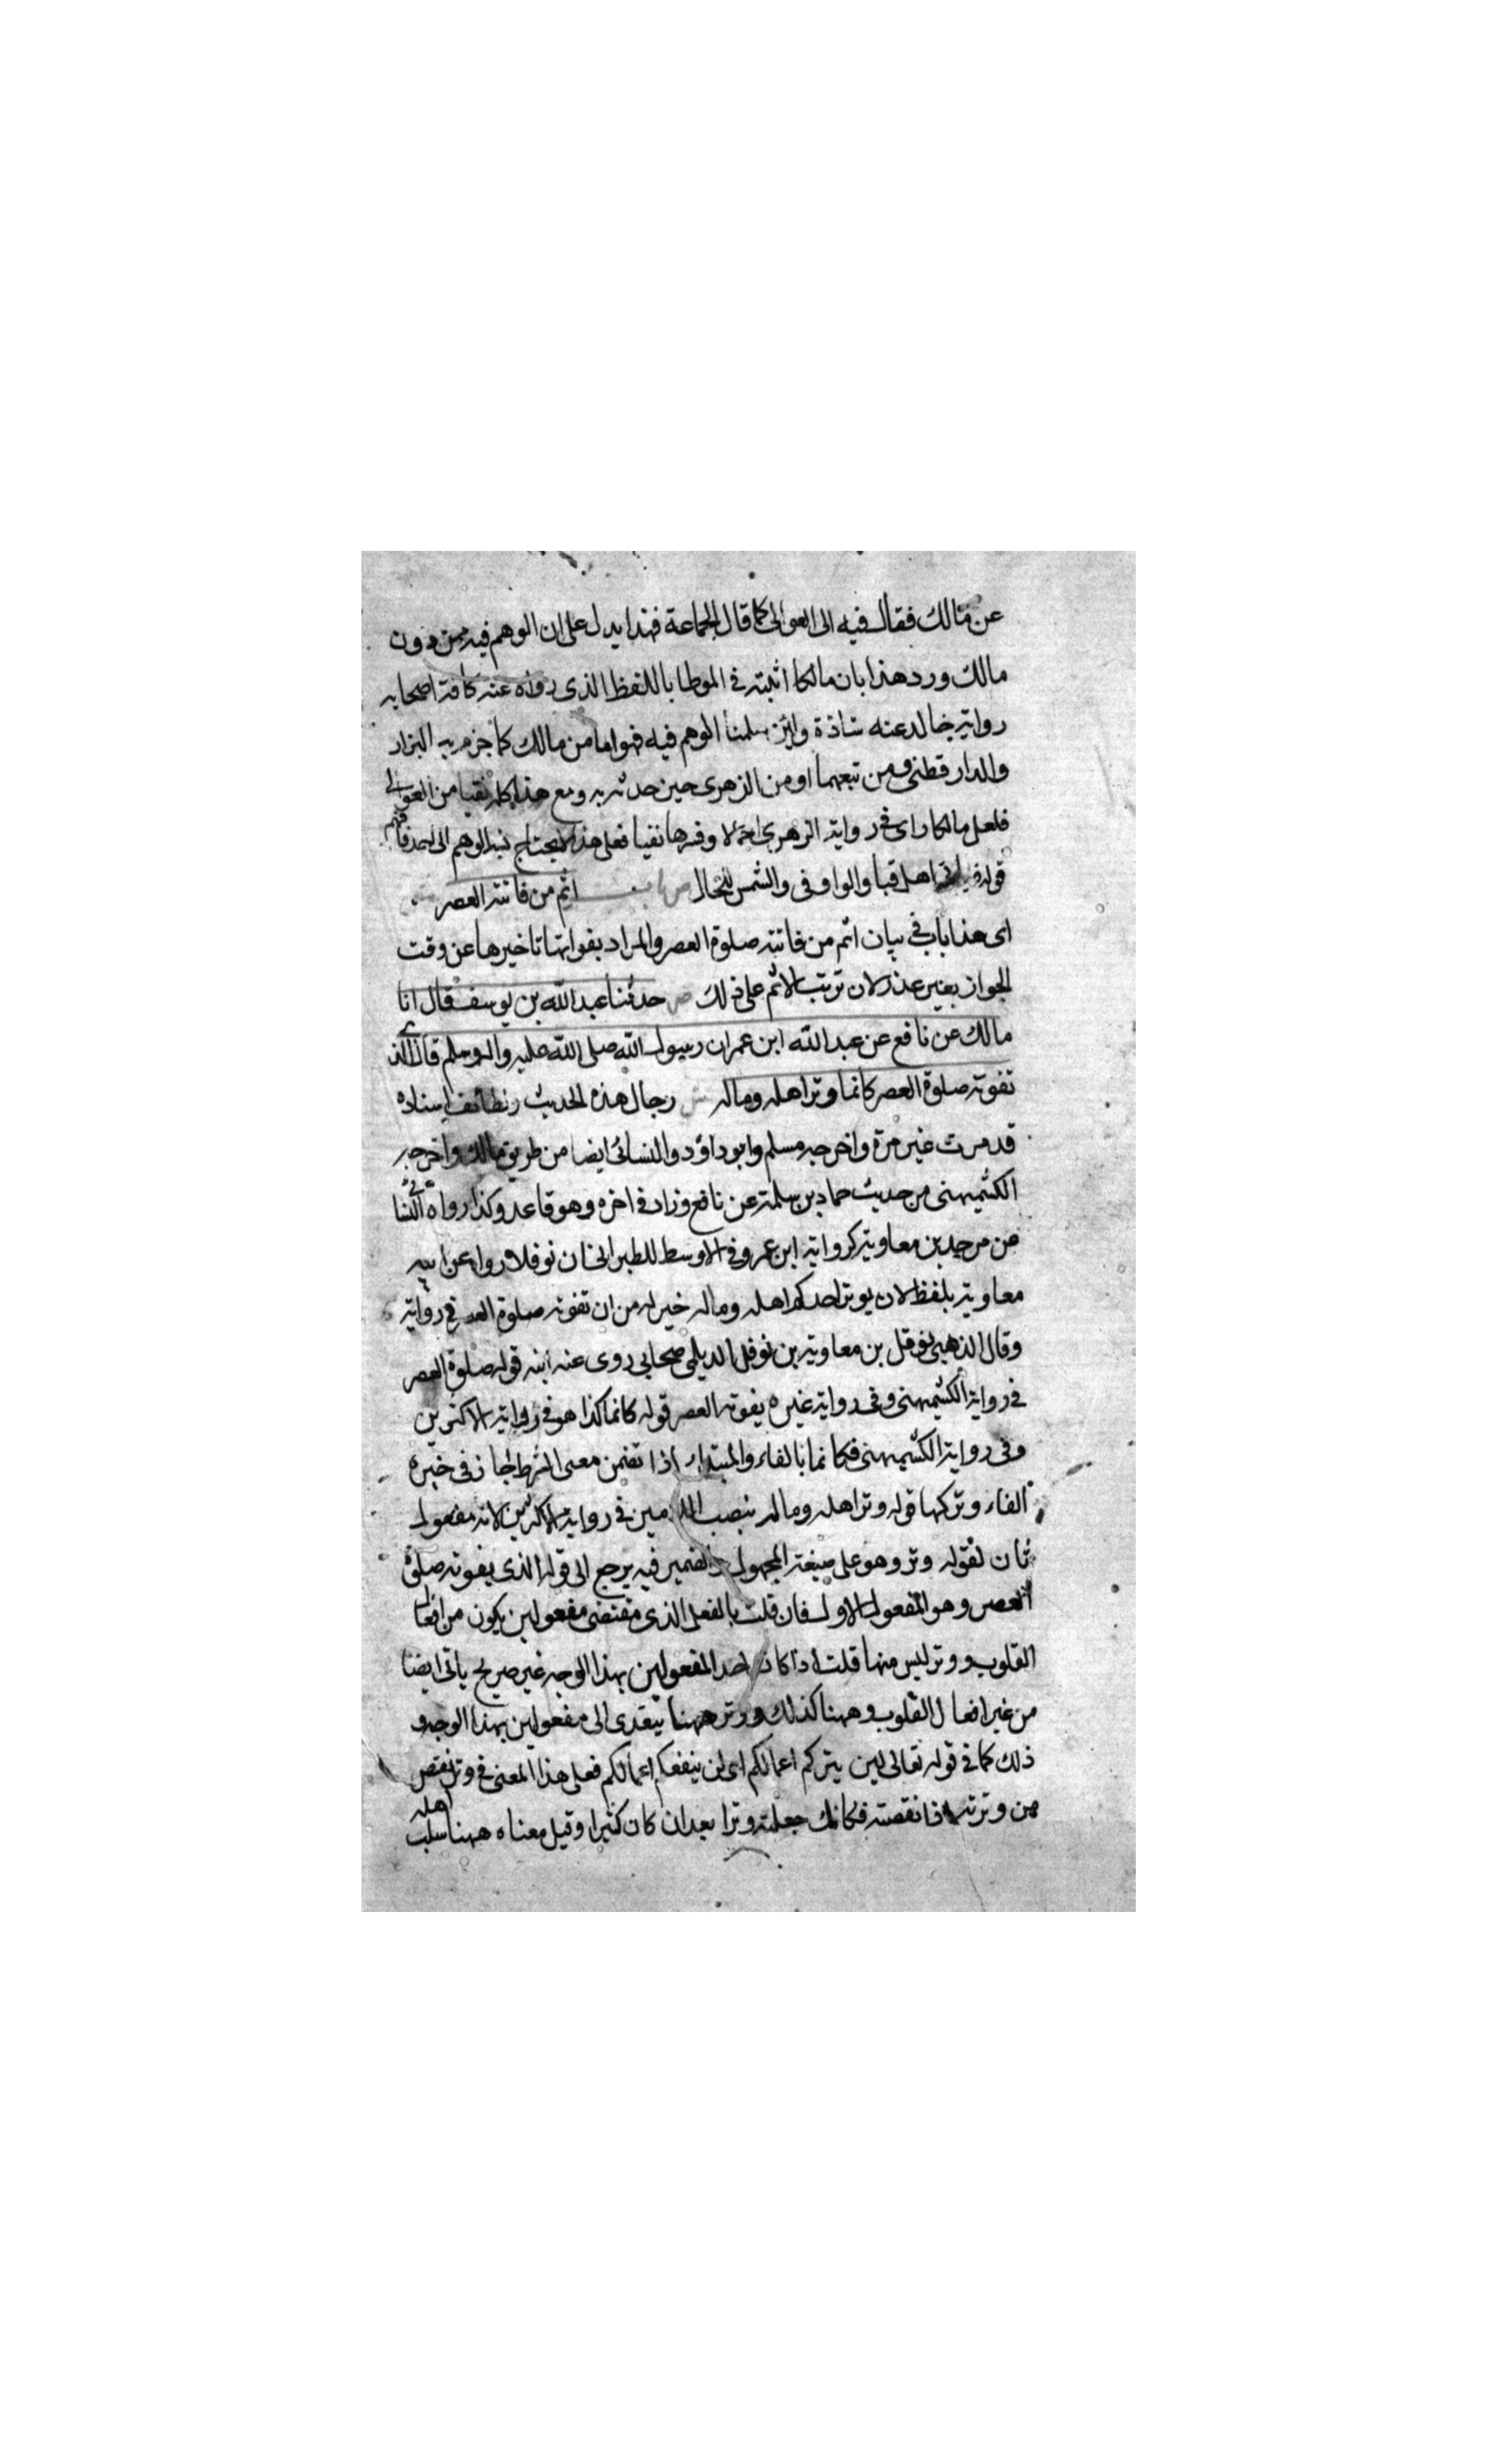 عن مالك فقال فيه الى العوالى كما قال الجماعة فهذا يدل على ان الوهم فيه ممن دون
مالك ورد هذا بان مالكا اثبته في الموطا باللفظ الذى رواه عنه كافة اصحابه
رواية خالد عنه شاذة ولئن سلمنا الوهم فيه فهو اما من مالك كما جزم به البزار
والدارقطنى ومن تبعهما او من الزهرى حين حدثه به ومع هذا كله فقبا من العوالى
فلعل مالكا راى في رواية الزهرى اجمالا وفسرها بقبا فعلى هذا لا يحتاج نسبة الوهم الى احد فافهم
قوله الى اهل قبا والواو في والشمس للحال ص باب اثم من فاتته العصر
اى هذا باب في بيان اثم من فاتته صلوة العصر والمراد بفواتها تاخيرها عن وقت
الجواز بغير عذر لان ترتب الاثم على ذلك ص حدثنا عبد الله بن يوسف قال انا
مالك عن نافع عن عبد الله ابن عمر ان رسول الله صلى الله عليه واله وسلم قال الذى
تفوته صلوة العصر كانما وتر اهله وماله ش رجال هذه الحديث ولطائف اسناده
قد مرت غير مرة واخرجه مسلم وابو داؤد والنسائى ايضا من طريق مالك واخرجه
الكشميهنى من حديث حماد بن سلمة عن نافع وزاد في اخره وهو قاعد وكذا رواه النسائى
من بن معاوية كرواية ابن عمر وفي الاوسط للطبرانى ان نوفلا رواه عن ابيه
معاوية بلفظ لان يوتر احدكم اهله وماله خير له من ان تفوته صلوة العصر في رواية
وقال الذهبى نوفل بن معاوية بن نوفل الديلمى صحابى روى عنه ابنه قوله صلوة العصر
في رواية الكشميهنى وفى رواية غيره يفوته العصر قوله كانما كذا هو في رواية الاكثرين
وفى رواية الكشميهنى فكانما بالفاء والمبتداء اذا تضمن معنى الشرط جاز فى خبره
الفاء وتركها قوله وتر اهله وماله بنصب اللامين في رواية الاكثرين لانه مفعول
ثان لقوله وتر وهو على صيغة المجهول والضمير فيه يرجع الى قوله الذى يفوته صلوة
العصر وهو المفعول الاول فان قلت بالفعل الذى مقتضى مفعولين يكون من افعال
القلوب ووتر ليس منها قلت اذا كان احد المفعولين بهذا الوجه غير صريح ياتى ايضا
من غير افعال القلوب وههنا كذلك ووتر ههنا يتعدى الى مفعولين بهذا الوجه و
ذلك كما في قوله تعالى لن يتركم اعمالكم اى لن ينفعكم اعمالكم فعلى هذا المعنى في وتر نقص
من وترته اذا نقصته فكانك جعلته وترا بعد ان كان كثيرا وقيل معناه ههنا سلب اهله